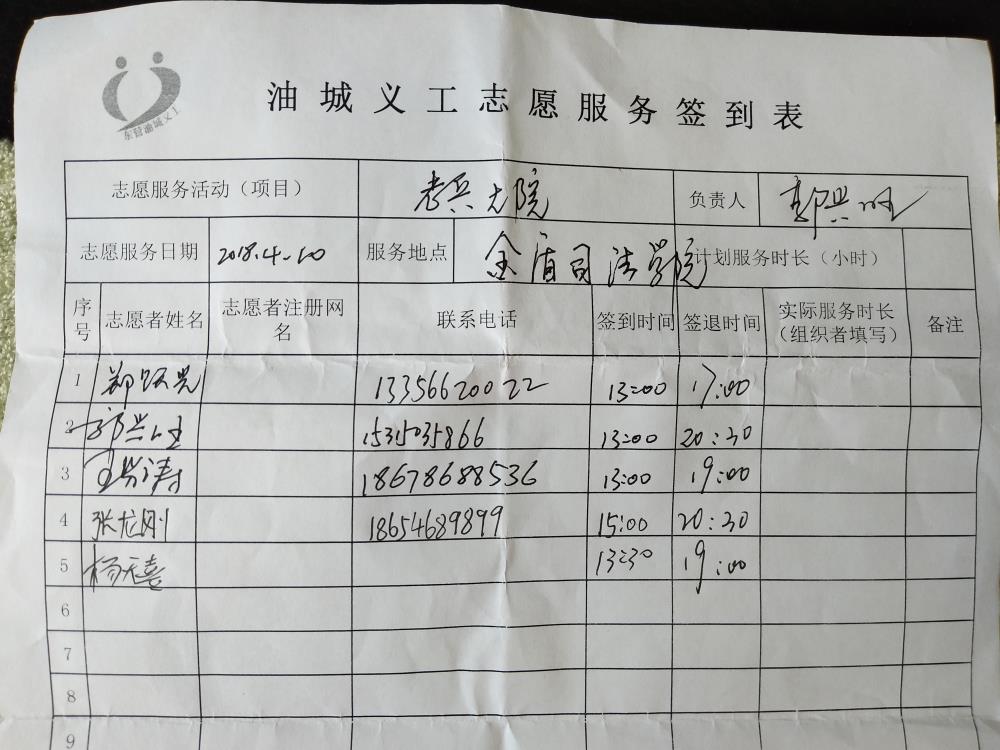 东营油城义工
油城义工志愿服务签到表
志愿服务活动（项目） 老兵大院 负责人 郭兴旺
志愿服务日期 2018.4.10 服务地点 金盾司法学院 计划服务时长（小时）
序号 志愿者姓名 志愿者注册网名 联系电话 签到时间 签退时间 实际服务时长（组织者填写） 备注
1 郑跃光 13356620022 13:00 17:00
2 郭兴旺 13:00 20:30
3 18678688536 13:00 19:00
4 张龙刚 18654689899 15:00 20:30
5 杨天喜 13:30 19:00
6
7
8
9